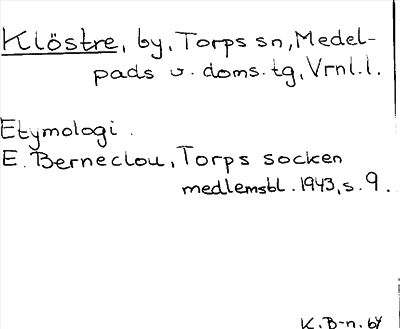 Klöstre, by, Torps sn, Medel-
pads v. doms. tg, Vrnl. l.
Etymologi.
E. Berneclou, Torps socken
medlemsbl. 1943, s. 9.
K. B-n. 64